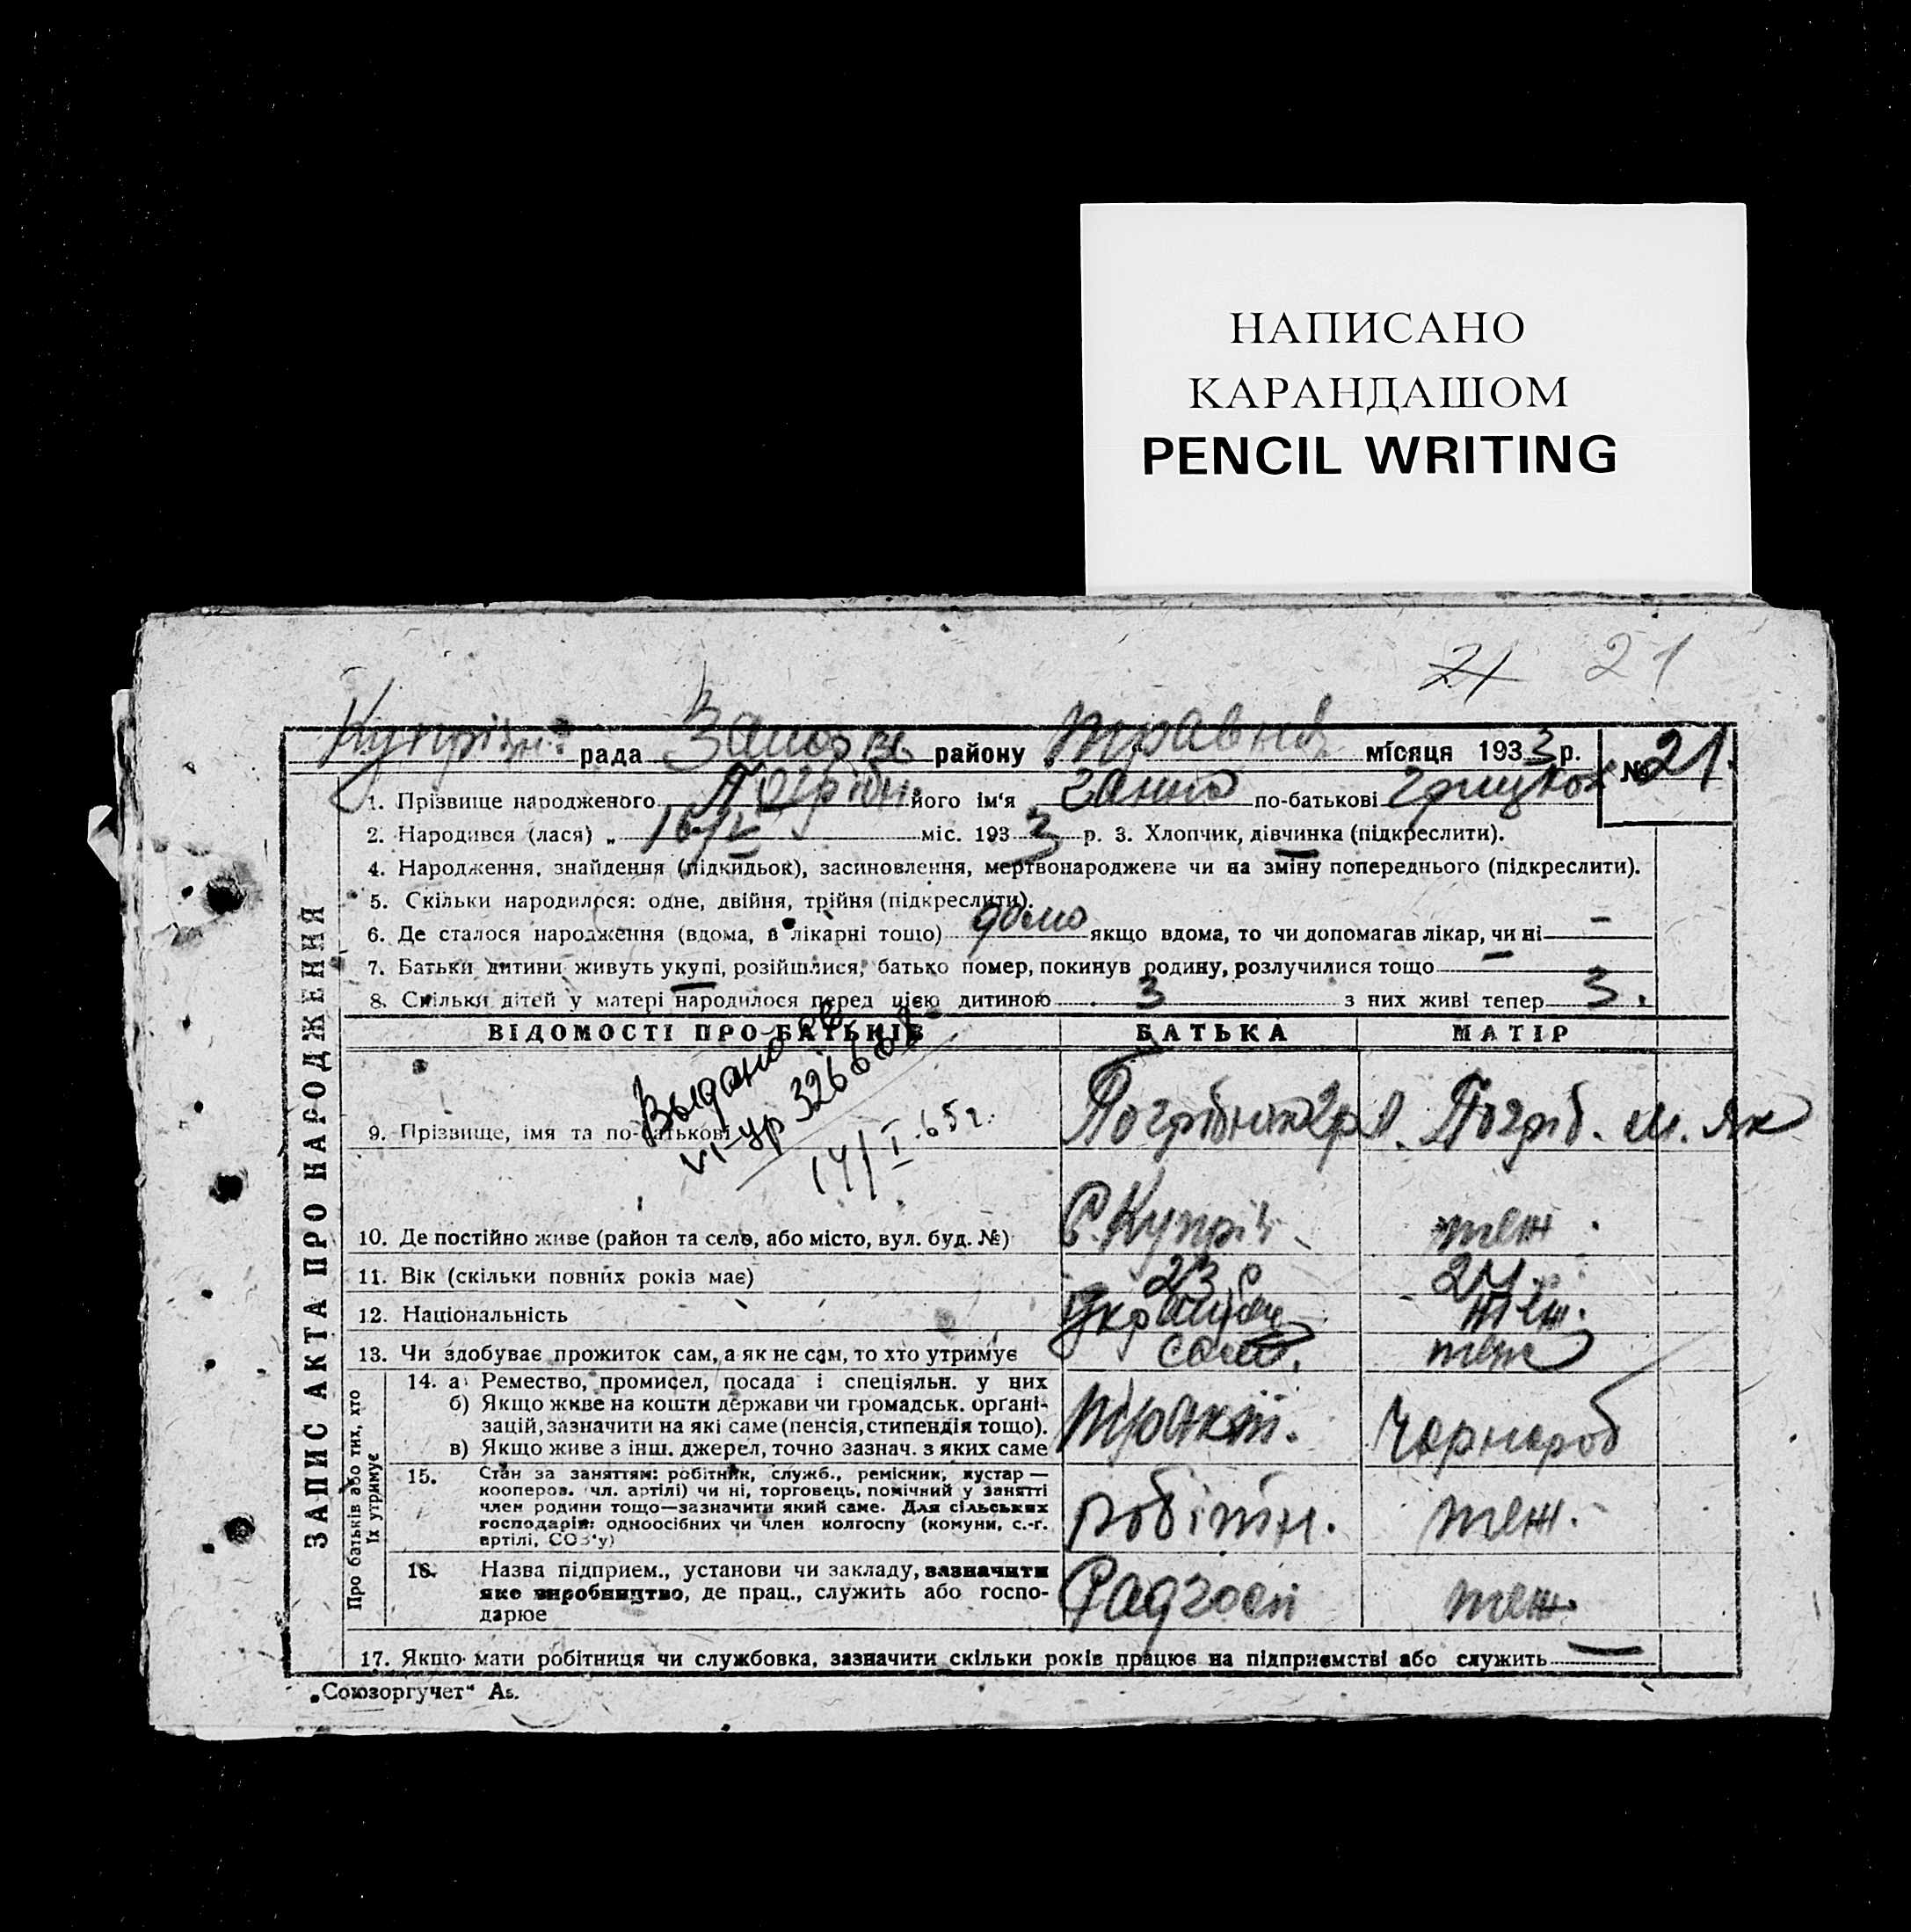 НАПИСАНО
КАРАНДАШОМ
PENCIL WRITING
21 21
рада району травня місяця 1933 р. № 21.
1. Прізвище народженого Погрібн. його ім'я Ганна по-батькові
2. Народився (лася) „ 16/V міс. 1933 р. 3. Хлопчик, дівчинка (підкреслити).
4. Народження, знайдення (підкидьок), засиновлення, мертвонароджене чи на зміну попереднього (підкреслити).
5. Скільки народилося: одне, двійня, трійня (підкреслити).
6. Де сталося народження (вдома, в лікарні тощо) дома якщо вдома, то чи допомагав лікар, чи ні —
7. Батьки дитини живуть укупі, розійшлися, батько помер, покинув родину, розлучилися тощо
8. Скільки дітей у матері народилося перед цією дитиною 3 з них живі тепер 3.
ЗАПИС АКТА ПРО НАРОДЖЕННЯ
ВІДОМОСТІ ПРО БАТЬКІВ БАТЬКА МАТІР
Выдано
УР 326
14/I-65 г.
9. Прізвище, імя та по-батькові Погріб. М. Як
10. Де постійно живе (район та село, або місто, вул. буд. №) С. Купрів теж.
11. Вік (скільки повних років має) 23 24.
12. Національність теж.
13. Чи здобуває прожиток сам, а як не сам, то хто утримує сам. теж
Про батьків або тих, хто їх утримує
14. а) Ремество, промисел, посада і спеціяльн. у них
б) Якщо живе на кошти держави чи громадськ. орґані-
зацій, зазначити на які саме (пенсія, стипендія тощо). Тракт. Чорнороб
в) Якщо живе з інш. джерел, точно зазнач. з яких саме
15. Стан за заняттям: робітник, служб., ремісник, кустар —
коопероз. чл. артілі) чи ні, торговець, помічний у занятті
член родини тощо—зазначити який саме. Для сільських робітн. теж.
господарів: одноосібних чи член колгоспу (комуни, с.-г.
артілі, СОЗ'у)
16. Назва підприєм., установи чи закладу, зазначити
яке виробництво, де прац., служить або госпо- Радгосп теж.
дарює
17. Якщо мати робітниця чи службовка, зазначити скільки років працює на підприємстві або служить —
„Союзоргучет"